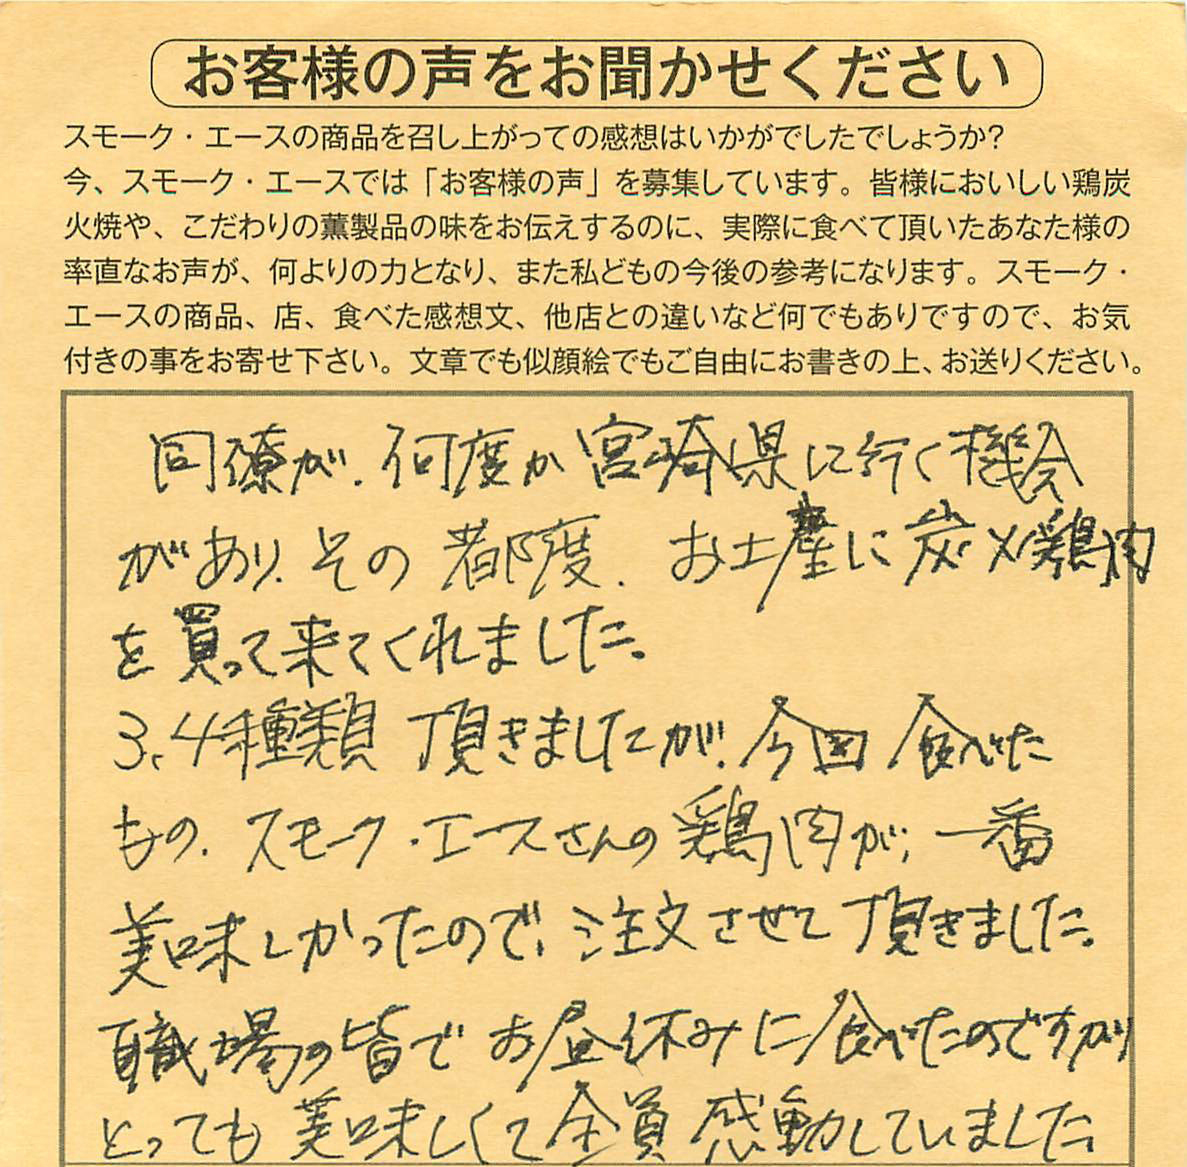 お客様の声をお聞かせください
スモーク・エースの商品を召し上がっての感想はいかがでしたでしょうか？
今、スモーク・エースでは「お客様の声」を募集しています。皆様においしい鶏炭
火焼や、こだわりの薫製品の味をお伝えするのに、実際に食べて頂いたあなた様の
率直なお声が、何よりの力となり、また私どもの今後の参考になります。スモーク・
エースの商品、店、食べた感想文、他店との違いなど何でもありですので、お気
付きの事をお寄せ下さい。文章でも似顔絵でもご自由にお書きの上、お送りください。
同僚が、何度か宮崎県に行く機会
があり、その都度、お土産に炭火鶏肉
を買って来てくれました。
3、4種類頂きましたが、今回食べた
もの、スモーク・エースさんの鶏肉が、一番
美味しかったので、注文させて頂きました。
職場の皆でお昼休みに食べたのですが、
とっても美味しくて全員感動していました。